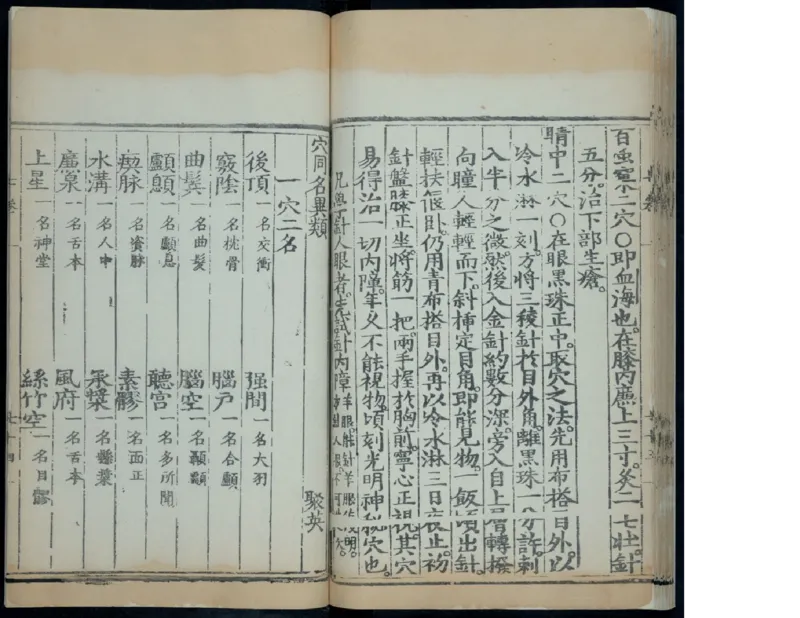 百虫窠二穴〇即血海也。在膝內廉上三寸。灸二七壯。針
五分。治下部生瘡。
睛中二穴〇在眼黑珠正中。取穴之法。先用布搭目外。以
冷水淋一刻。方將三稜針於目外角。離黑珠一分許。刺
入半分之微。然後入金針約數分深。旁入自上層轉撥
向瞳人輕輕而下。斜插定目角。即能見物。一飯頃出針。
輕扶偃卧。仍用青布搭目外。再以冷水淋三日夜止。初
針盤膝正坐。將筋一把。兩手握於胸前。寧心正視。其穴
易得。治一切內障。年久不能視物。頃刻光明。神秘穴也。
凡學針人眼者。先試針內障羊眼。能針羊眼復明。方針人眼。不可
穴同名異類 聚英
一穴二名
後頂 一名交衝 强間 一名大羽
竅陰 一名枕骨 腦戶 一名合顱
曲鬢 一名曲髮 腦空 一名顳顬
顱顖 一名顱息 聽宮 一名多所聞
瘈脉 一名資脉 素髎 一名面正
水溝 一名人中 承漿 一名懸漿
廉泉 一名舌本 風府 一名舌本
上星 一名神堂 絲竹空 一名目髎